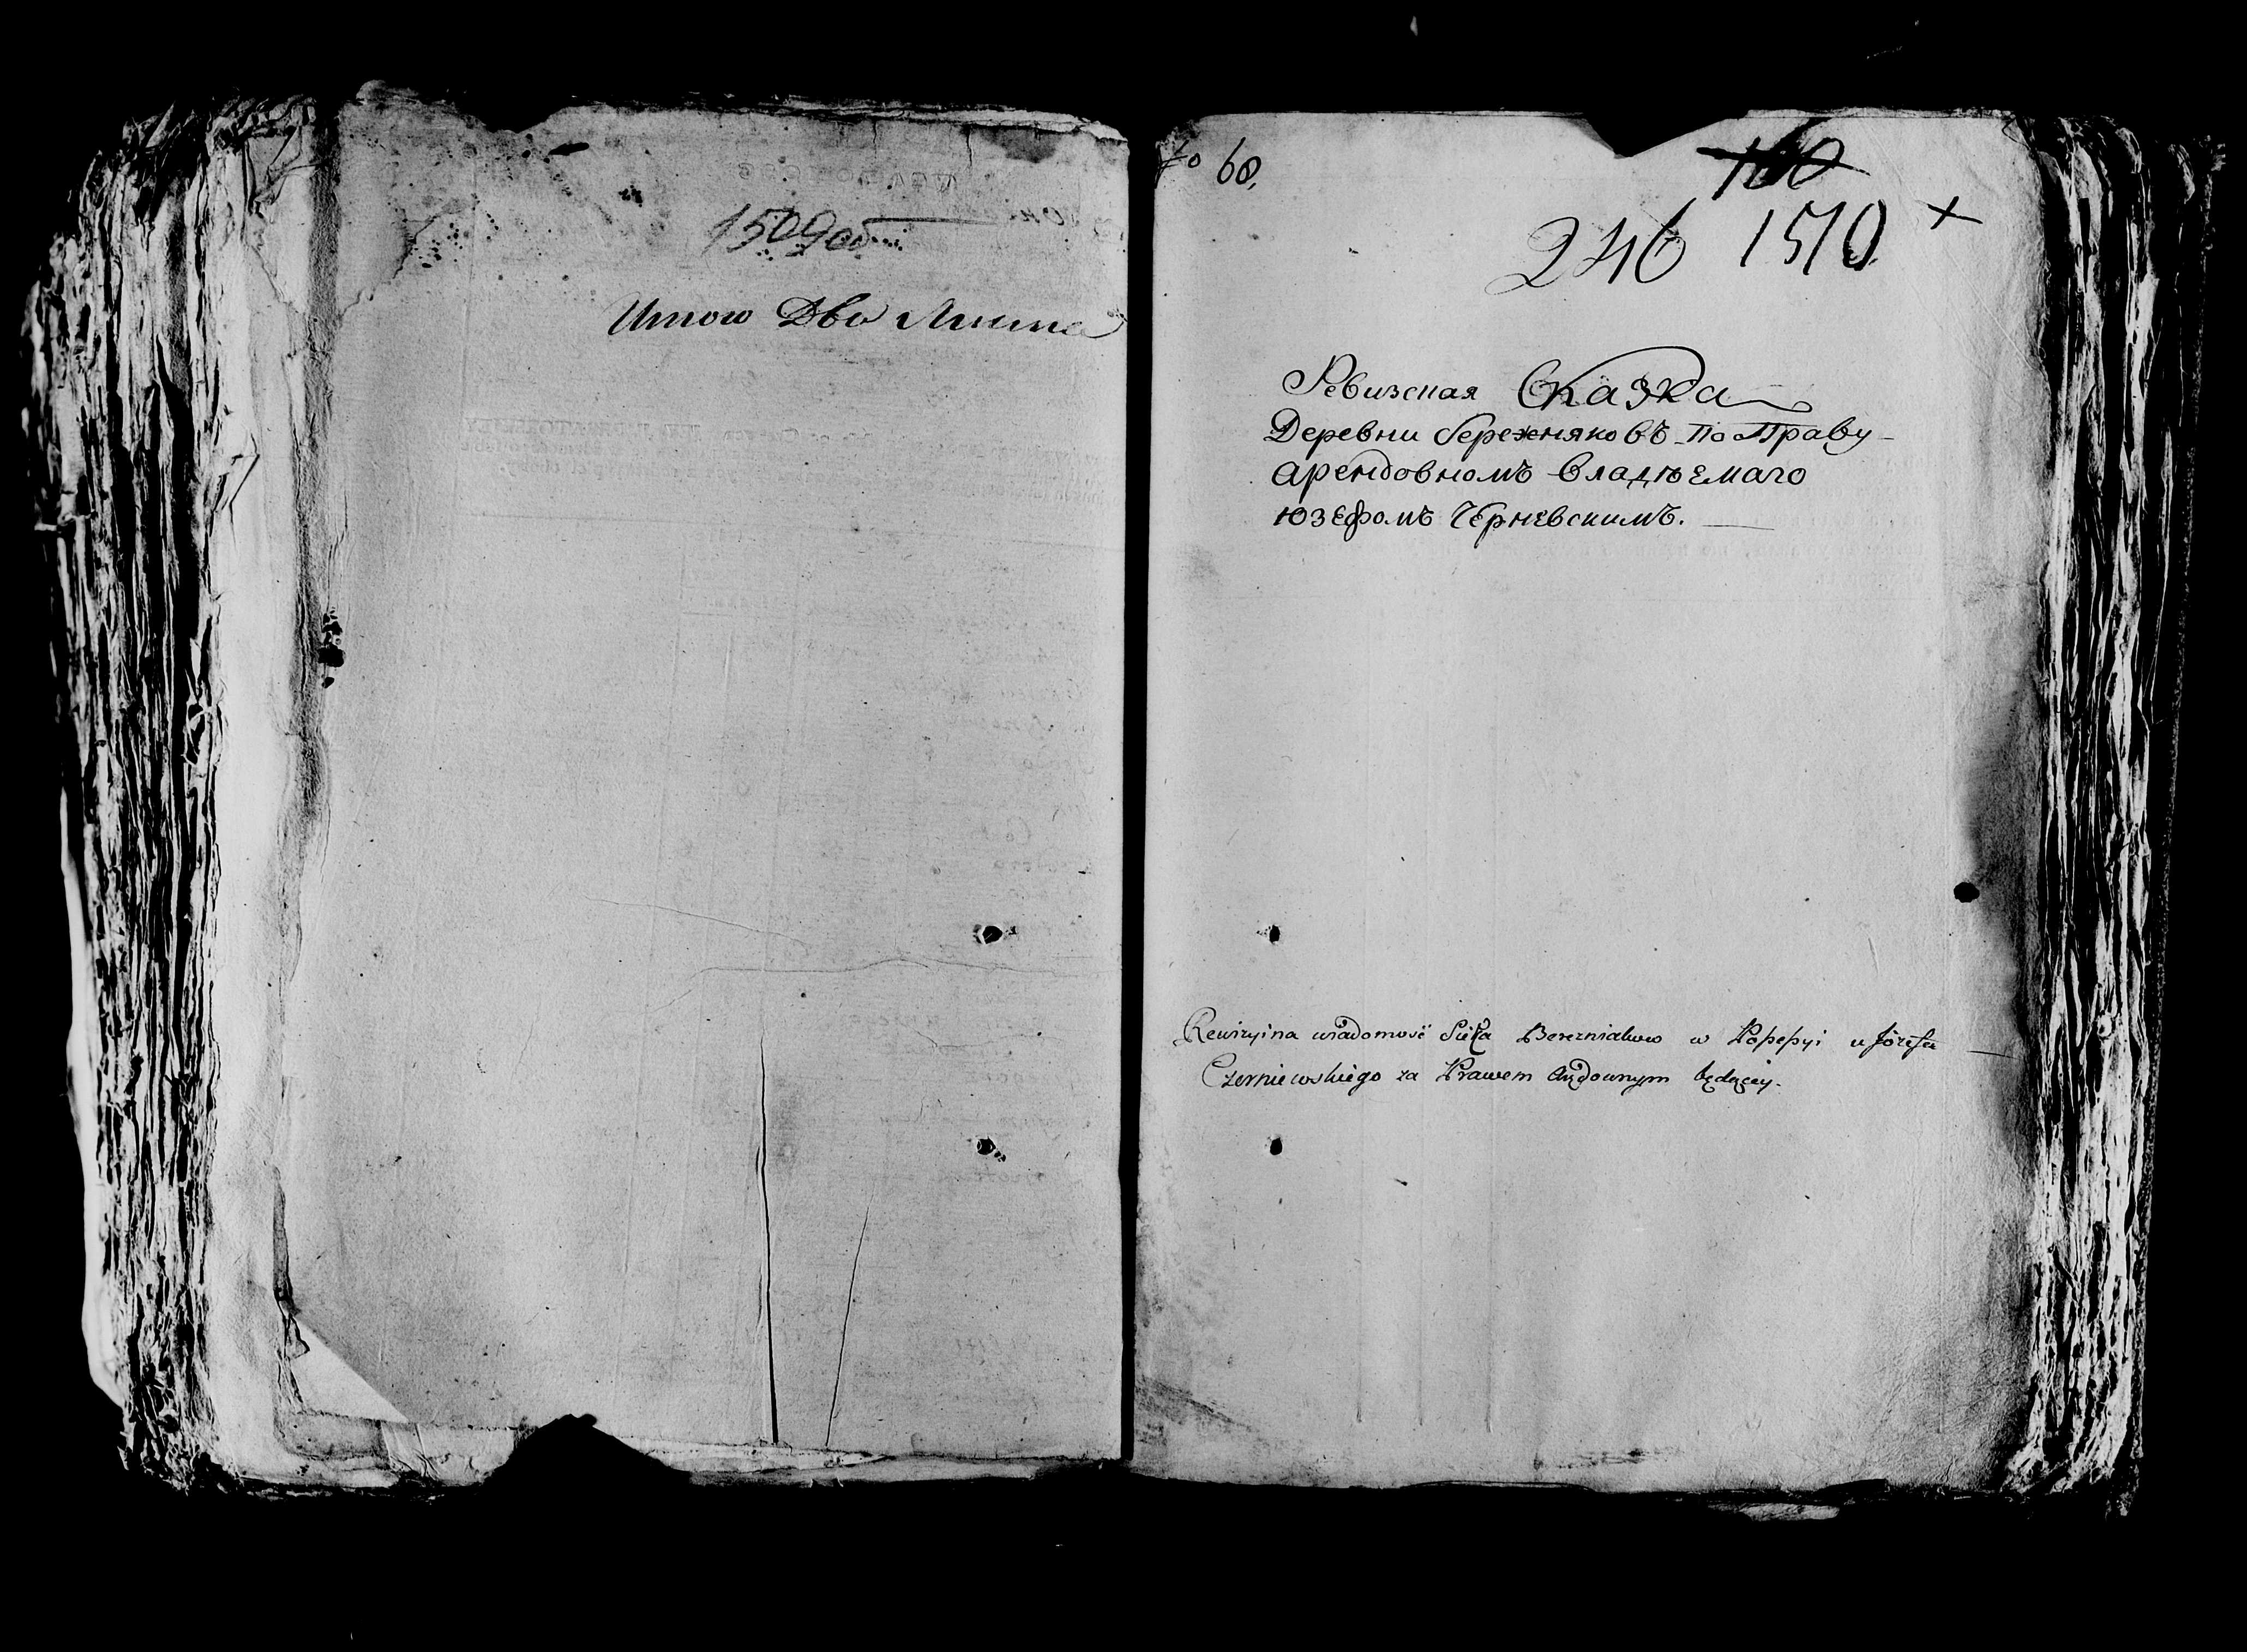 1509 об
Итого Два Листа
fo 60.
160
246 1510 +
Ревизская Сказка
Деревни бережняковъ По Праву
арендовномъ владѣемаго
юзефомъ Черневскимъ.
Rewizyina wiadomość Sioła Berezniakow w Possessyi u Józefa
Czerniewskiego za Prawem Arędownym będącey.